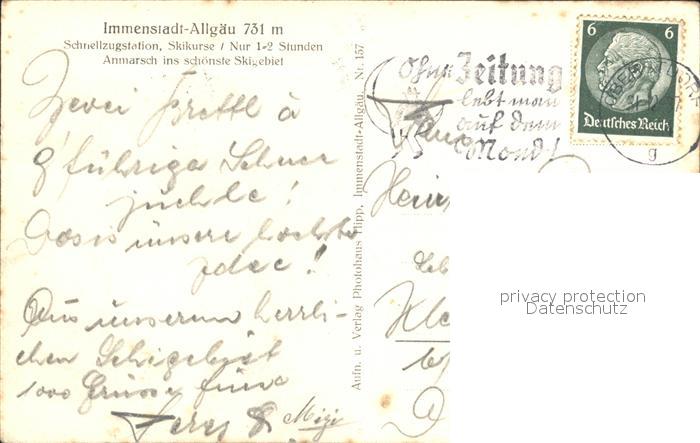 Immenstadt-Allgäu 731 m
Schnellzugstation, Skikurse / Nur 1-2 Stunden
Anmarsch ins schönste Skigebiet
Zwei Brettl à
g'führiga Schnee
juchhe!
Das is unsere höchste
Idee!
Aus unserem herrli-
chen Schigebiet
1000 Grüsse
Mizi
Aufn. u. Verlag Photohaus Hipp, Immenstadt-Allgäu, Nr. 157
Ohne Zeitung
lebt man
auf dem
Mond!
6 6
Deutsches Reich
g
privacy protection
Datenschutz